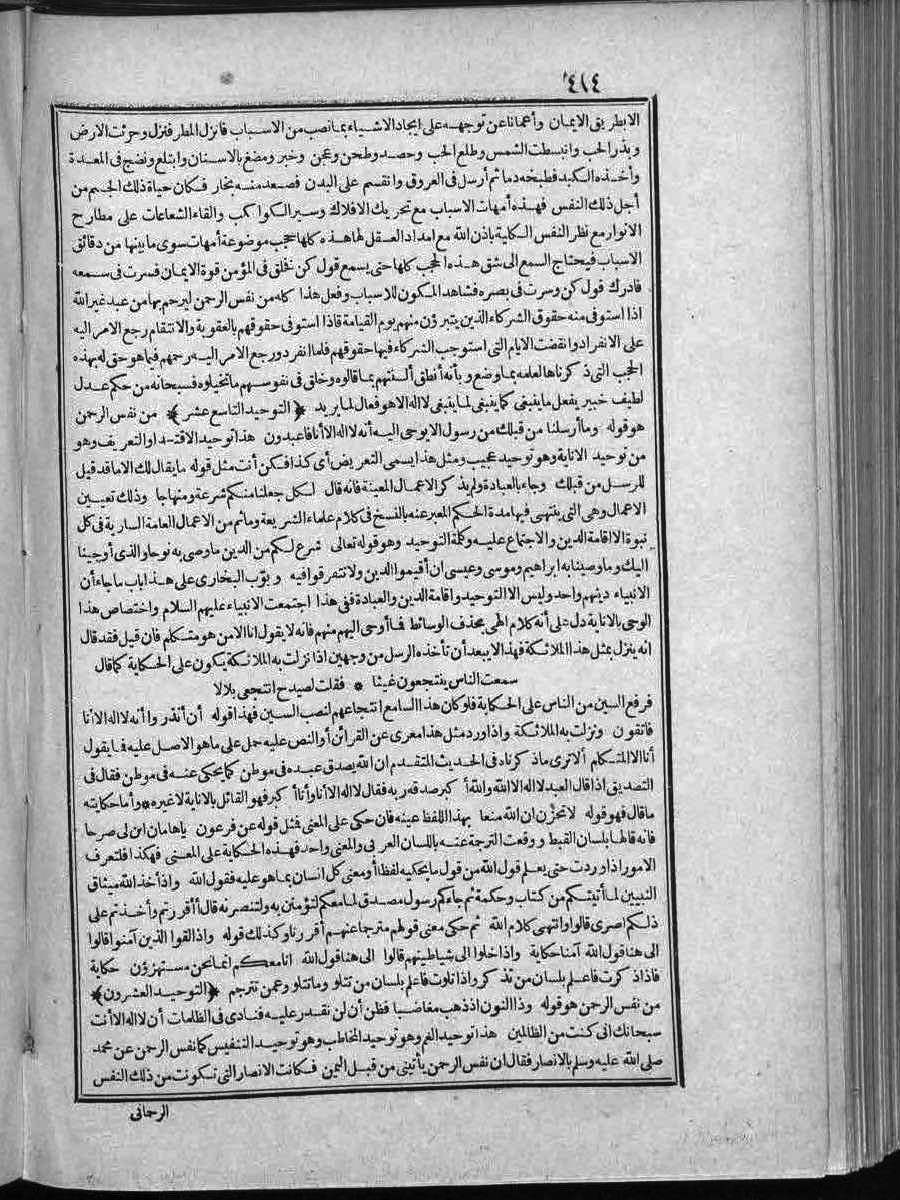 ٤١٤
الا بطريق الايمان وأعمانا عن توجهه على ايجاد الاشياء بما نصب من الاسباب فانزل المطر فنزل وحرثت الارض
وبذر الحب وانبسطت الشمس وطلع الحب وحصد وطحن وعجن وخبز ومضغ بالاسنان وابتلع ونضج فى المعدة
وأخذه الكبد فطبخه دما ثم أرسل فى العروق وانقسم على البدن فصعد منه بخار فكان حياة ذلك الجسم من
أجل ذلك النفس فهذه أمهات الاسباب مع تحريك الافلاك وسير الكواكب والقاء الشعاعات على مطارح
الانوار مع نظر النفس الكلية باذن الله مع امداد العقل لها هذه كلها حجب موضوعة أمهات سوى ما بينها من دقائق
الاسباب فيحتاج السمع الى شق هذه الحجب كلها حتى يسمع قول كن نخلق فى المؤمن قوة الايمان فسرت فى سمعه
فادرك قول كن وسرت فى بصره فشاهد المكون للاسباب وفعل هذا كله من نفس الرحمن ليرحم بها من عبد غير الله
اذا استوفى منه حقوق الشركاء الذين يتبرؤن منهم يوم القيامة فاذا استوفى حقوقهم بالعقوبة والانتقام رجع الامر اليه
على الانفراد وانقضت الايام التى استوجب الشركاء فيها حقوقهم فلما انفرد ورجع الامر اليه رحمهم فيما هو حق له بهذه
الحجب التى ذكرناها لعلمه بما وضع وبأنه أنطق ألسنتهم بما قالوه وخلق فى نفوسهم ما تخيلوه فسبحانه من حكم عدل
لطيف خبير يفعل ما ينبغى كما ينبغى لما ينبغى لا اله الا هو فعال لما يريد ﴿التوحيد التاسع عشر﴾ من نفس الرحمن
هو قوله وما أرسلنا من قبلك من رسول الا يوحى اليه أنه لا اله الا أنا فاعبدون هذا توحيد الاقتداء والتعريف وهو
من توحيد الاناية وهو توحيد عجيب ومثل هذا يسمى التعريض أى كذا فكن أنت مثل قوله ما يقال لك الا ما قد قيل
للرسل من قبلك وجاء بالعبادة ولم يذكر الاعمال المعينة فانه قال لكل جعلنا منكم شرعة ومنهاجا وذلك تعيين
الاعمال وهى التى ينتهى فيها مدة الحكم المعبر عنه بالنسخ فى كلام علماء الشريعة وما ثم من الاعمال العامة السارية فى كل
نبوة الا اقامة الدين والاجتماع عليه وكلمة التوحيد وهو قوله تعالى شرع لكم من الدين ما وصى به نوحا والذى أوحينا
اليك وما وصينا به ابراهيم وموسى وعيسى ان أقيموا الدين ولا تتفرقوا فيه وبوّب البخارى على هذا باب ما جاء أن
الانبياء دينهم واحد وليس الا التوحيد واقامة الدين والعبادة ففى هذا اجتمعت الانبياء عليهم السلام واختصاص هذا
الوحى بالاناية دل على أنه كلام الهى بحذف الوسائط فما أوحى اليهم منهم فانه لا يقول انا الا من هو متكلم فان قيل فقد قال
انه ينزل بمثل هذا الملائكة فهذا لا يبعد أن تأخذه الرسل من وجهين اذا نزلت به الملائكة يكون على الحكاية كما قال
سمعت الناس ينتجعون غيثا * فقلت لصيدح انتجعى بلالا
فرفع السين من الناس على الحكاية فلو كان هذا السامع انتجاعهم لنصب السين فهذا قوله أن أنذروا أنه لا اله الا أنا
فاتقون ونزلت به الملائكة واذا ورد مثل هذا معرى عن القرائن أو النص عليه حمل على ما هو الاصل عليه فما يقول
أنا الا المتكلم ألا ترى ما ذكرناه فى الحديث المتقدم ان الله يصدق عبده فى موطن كما يحكى عنه فى موطن فقال فى
التصديق اذا قال العبد لا اله الا الله والله أكبر صدقه ربه فقال لا اله الا أنا وأنا أكبر فهو القائل بالاناية لا غيره * وأما حكايته
ما قال فهو قوله لا تحزن ان الله معنا بهذا اللفظ عينه فان حكى على المعنى فمثل قوله عن فرعون يا هامان ابن لى صرحا
فانه قالها بلسان القبط ووقعت الترجمة عنه باللسان العربى والمعنى واحد فهذه الحكاية على المعنى فهكذا فلتعرف
الامور اذا وردت حتى يعلم قول الله من قول ما يحكيه لفظا أو معنى كل انسان بما هو عليه فقول الله واذ أخذ الله ميثاق
النبيين لما أتيتكم من كتاب وحكمة ثم جاءكم رسول مصدق لما معكم لتؤمنن به ولتنصرنه قال أأقررتم وأخذتم على
ذلكم اصرى قالوا وانتهى كلام الله ثم حكى معنى قولهم مترجما عنهم أقررنا وكذلك قوله واذا لقوا الذين آمنوا قالوا
الى هنا قول الله آمنا حكاية واذا خلوا الى شياطينهم قالوا الى هنا قول الله انا معكم انما نحن مستهزؤن حكاية
فاذا ذكرت فاعلم بلسان من تذكر واذا تلوت فاعلم بلسان من تتلو وما تتلو وعمن تترجم ﴿التوحيد العشرون﴾
من نفس الرحمن هو قوله وذا النون اذ ذهب مغاضبا فظن أن لن نقدر عليه فنادى فى الظلمات أن لا اله الا أنت
سبحانك انى كنت من الظالمين هذا توحيد الغم وهو توحيد المخاطب وهو توحيد التنفيس كما نفس الرحمن عن محمد
صلى الله عليه وسلم بالانصار فقال ان نفس الرحمن يأتينى من قبل اليمن فكانت الانصار التى تكونت من ذلك النفس
الرحمانى